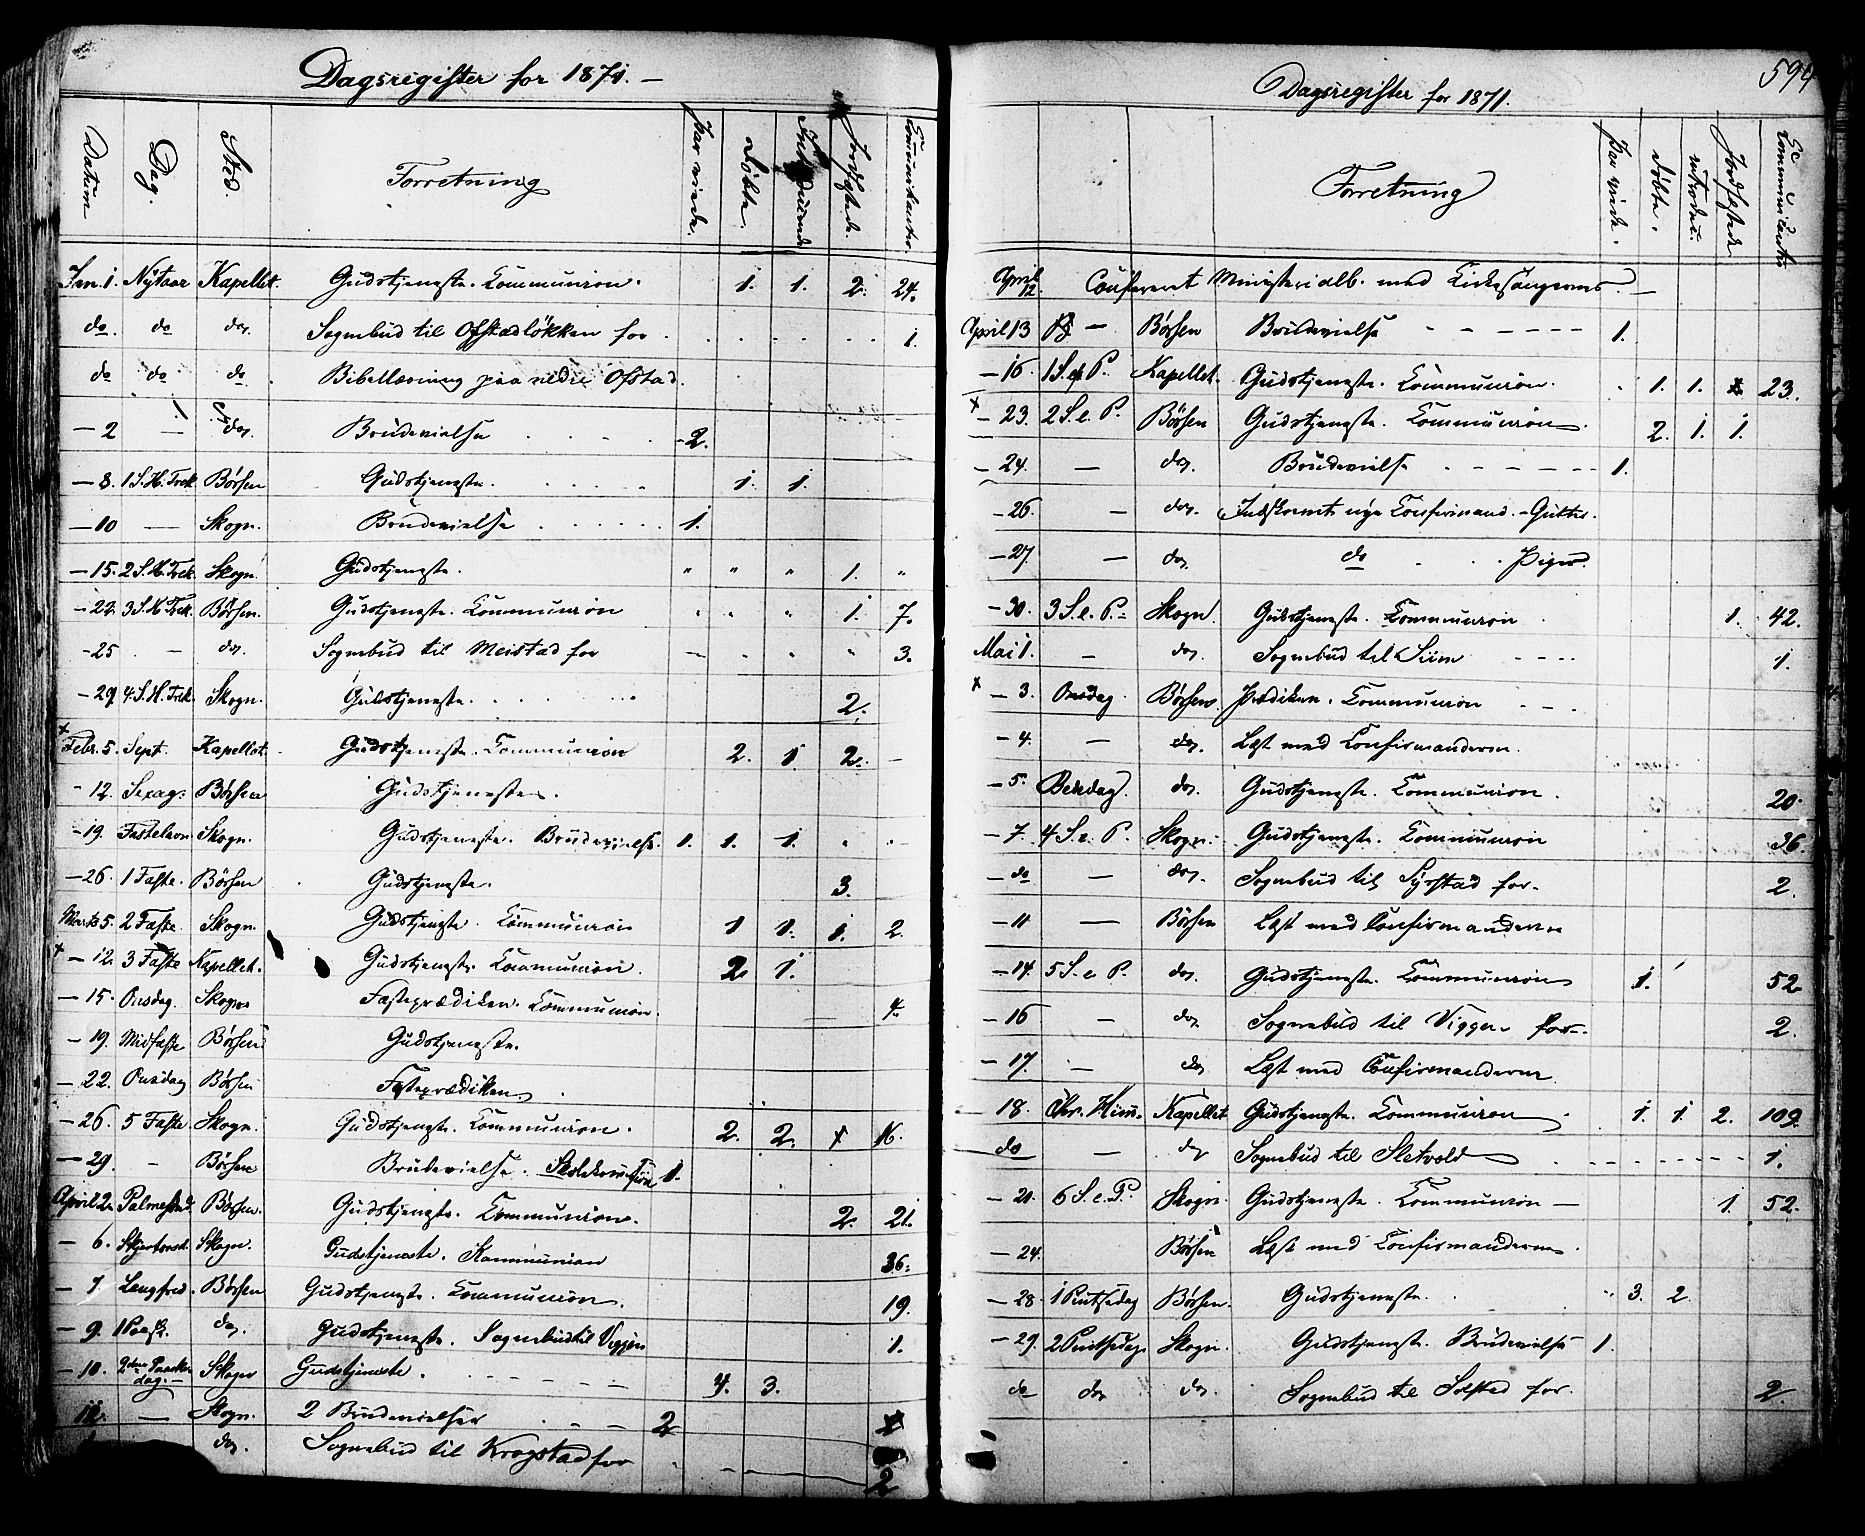 Dagsregister for 1871. —
Datum Dag. Sted. Forretning Par viede. Døbte. Introducerede Jordfæstede. Communikanter.
Jan. 1. Nytaar Kapellet. Gudstjeneste. Communion. 1. 1. 2. 24.
do. do do. Sognebud til Ofstadløkken for . . . . . . 1.
do do do. Bibellæsning paa nedre Ofstad.
— 2 — do. Brudevielse . . . . 2.
— 8. 1 S. H. Trek. Børsen Gudstjeneste. . . . . 1. 1.
— 10 — Skogn. Brudevielse . . . . . . 1.
— 15. 2 S. H. Trek. Skogn. Gudstjeneste. " " " 1. "
— 22. 3 S. H. Trek. Børsen. Gudstjeneste. Communion " " " 1. 7.
— 25 — do. Sognebud til Meistad for — " " " 3.
— 29 4. S. H. Trek. Skogn. Gudstjeneste. . . . . 2.
× Febr. 5. Sept. Kapellet. Gudstjeneste. Communion 2. 1 2. —
— 12. Sexag. Børsen Gudstjeneste.
— 19. Fastelavn Skogn. Gudstjeneste. Brudevielse. 1. 1. 1. " "
— 26. 1 Faste. Børsen Gudstjeneste. 3.
Marts 5. 2 Faste. Skogn. Gudstjeneste. Communion 1 1. 1. 2.
× — 12. 3 Faste Kapellet. Gudstjeneste. Communion. 2. 1.
— 15. Onsdag. Skogn Fasteprædiken. Communion. 4.
— 19. Midfaste Børsen Gudstjeneste.
— 22. Onsdag Børsen Fasteprædiken.
— 26. 5 Faste Skogn. Gudstjeneste. Communion. 2. 2. × 16.
— 29. — Børsen Brudevielse. 1.
April 2. Børsen. Gudstjeneste. Communion. 2. 21.
— 6. Skjertorsd. Skogn. Gudstjeneste. Kommunion 36.
— 7. Langfred. Børsen Gudstjeneste. Communion. 19.
— 9. 1 Paask. do. Gudstjeneste. Sognebud til Viggen 1.
— 10. 2den Paaske dag. — Skogn Gudstjeneste. . — — — — 4. 3.
— Skogn. 2 Brudevielser . . — — 2
do. Sognebud til Krogstad for 2
594
Dagsregister for 1871.
Forretning Par viede. Døbte. introduc. Jordfæstede Communicanter
April 12 Confereret Ministerialb. med Kirkesangerens. —
April 13 — Børsen Brudevielse — — — — 1.
— 16 1 S. e P. Kapellet. Gudstjeneste. Communion. 1. 1. 23.
× — 23. 2 S. e. P. Børsen Gudstjeneste. Communion. 2. 1. 1.
— 24. — do. Brudevielse — — — — 1.
— 26. — do. Indskrevet nye Confirmand. - Gutter.
— 27. — do. do . . Piger.
— 30. 3 S. e. P. Skogn. Gudstjeneste. Communion 1. 42.
Mai 1. — do. Sognebud til Siim — — — 1.
× — 3. Onsdag. Børsen. Prædiken. Communion — — —
— 4. — do. Læst med Confirmanderne.
— 5. Bededag. do. Gudstjeneste. Communion. 20.
— 7. 4 S. e. P. Skogn. Gudstjeneste. Communion 36.
— do — do. Sognebud til Syrstad for. 2.
— 11 — Børsen Læst med Confirmanderne
— 14. 5 S. e P. do. Gudstjeneste. Communion 1. 52
— 16 — do. Sognebud til Viggen for. 2.
— 17. — do Læst med Confirmanderne
18. Chr. Him. Kapellet Gudstjeneste. Communion . 1. 1 2. 109.
do — do Sognebud til Sletvold — — — — 1.
— 21. 6 S. e. P. Skogn. Gudstjeneste. Communion — 1. 52.
— 24. Børsen Læst med Confirmanderne.
— 28. 1 Pintsedag Børsen. Gudstjeneste. " 3. 2.
— 29. 2 Pintsedag Skogn. Gudstjeneste. Brudevielse 1.
do do do. Sognebud til Solstad for. 2.